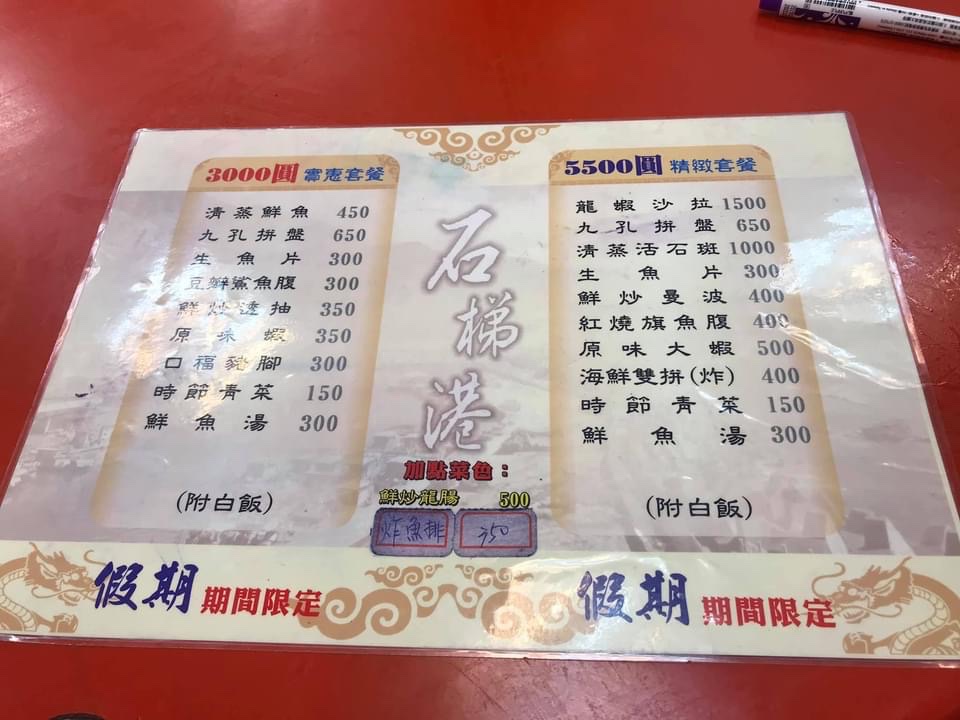 3000圓 實惠套餐
清蒸鮮魚 450
九孔拼盤 650
生魚片 300
豆瓣鯊魚腹 300
鮮炒透抽 350
原味蝦 350
口福豬腳 300
時節青菜 150
鮮魚湯 300
(附白飯)
石梯港
加點菜色：
鮮炒龍腸 500
炸魚排 350
5500圓 精緻套餐
龍蝦沙拉 1500
九孔拼盤 650
清蒸活石斑 1000
生魚片 300
鮮炒曼波 400
紅燒旗魚腹 400
原味大蝦 500
海鮮雙拼(炸) 400
時節青菜 150
鮮魚湯 300
(附白飯)
假期 期間限定
假期 期間限定